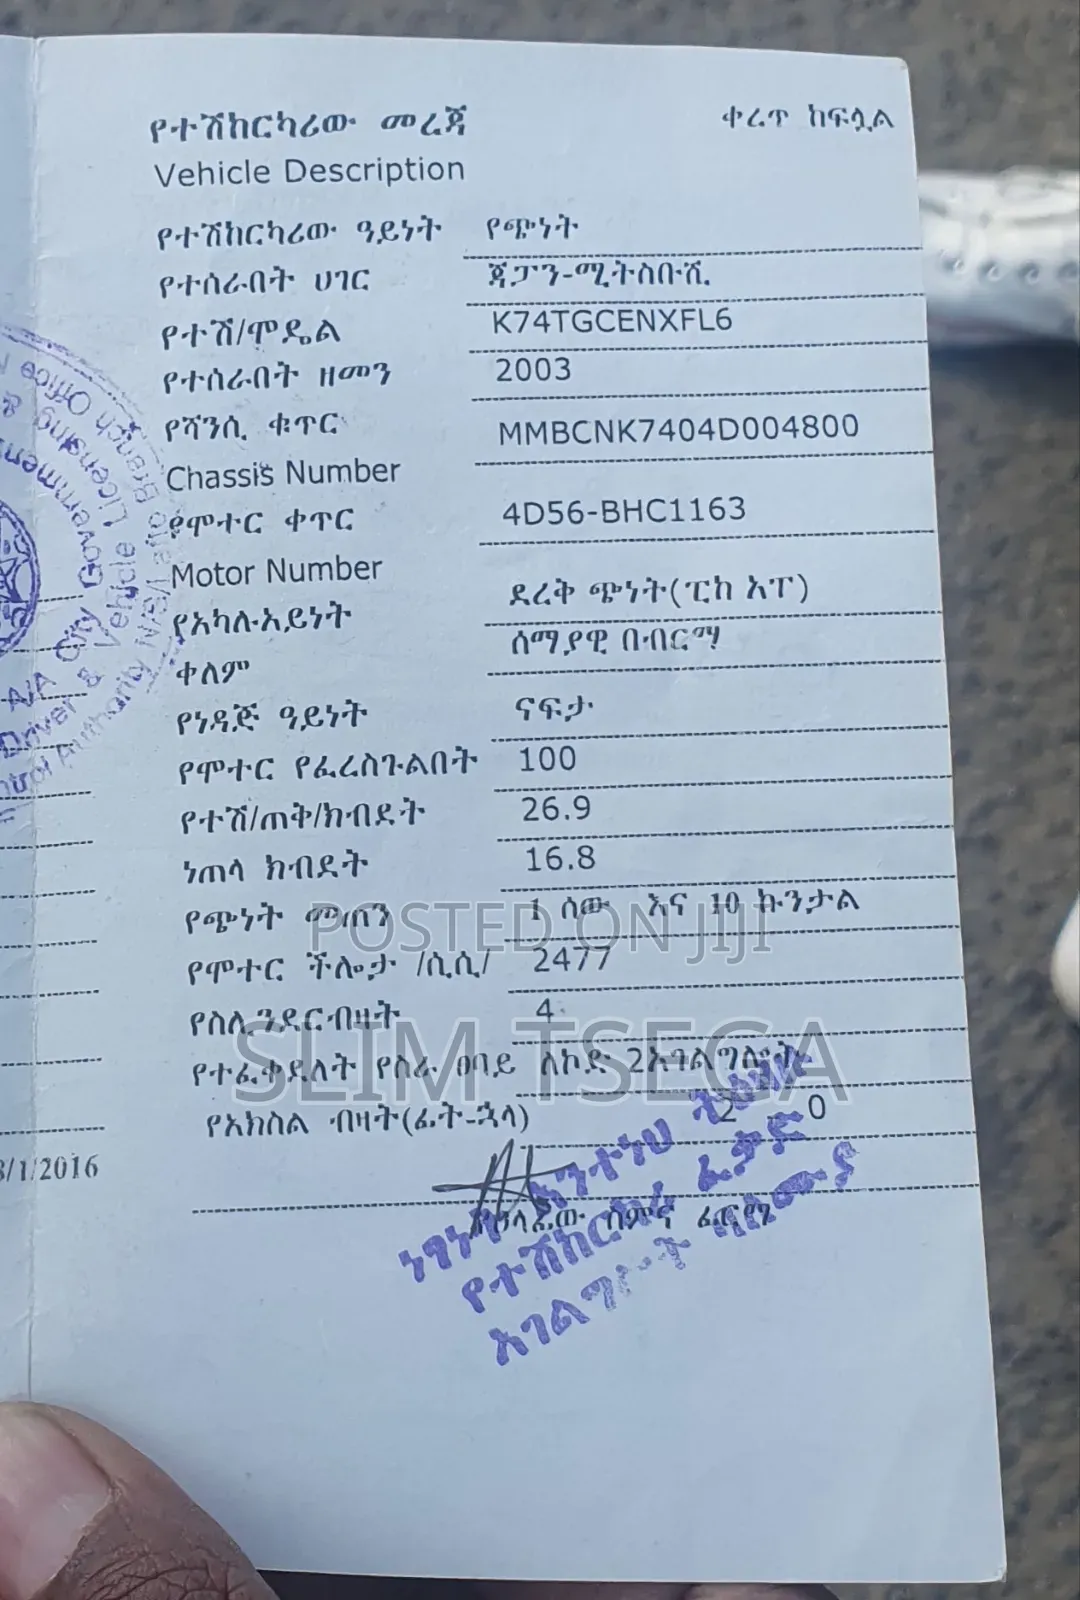 የተሽከርካሪው መረጃ ቀረጥ ከፍሏል
Vehicle Description
የተሽከርካሪው ዓይነት የጭነት
የተሰራበት ሀገር ጃፓን-ሚትስቡሺ
የተሽ/ሞዴል K74TGCENXFL6
የተሰራበት ዘመን 2003
የሻንሲ ቁጥር MMBCNK7404D004800
Chassis Number
የሞተር ቀጥር 4D56-BHC1163
Motor Number
የአካሉአይነት ደረቅ ጭነት(ፒክ አፕ)
ቀለም ሰማያዊ በብርማ
የነዳጅ ዓይነት ናፍታ
የሞተር የፈረስጉልበት 100
የተሽ/ጠቅ/ክብደት 26.9
ነጠላ ክብደት 16.8
የጭነት መጠን 1 ሰው እና 10 ኩንታል
የሞተር ችሎታ /ሲሲ/ 2477
የስሊንደርብዛት 4
የተፈቀደለት የስራ ፀባይ ለኮድ 2አገልግሎት
የአክስል ብዛት(ፊት-ኋላ) 2 0
3/1/2016
የኃላፊው ስምና ፊርማ
የተሽከርካሪ ፈቃድ
አገልግሎት
A/A City Government
Driver & Vehicle Licensing &
Authority
Branch Office
POSTED ON JIJI
SLIM TSEGA